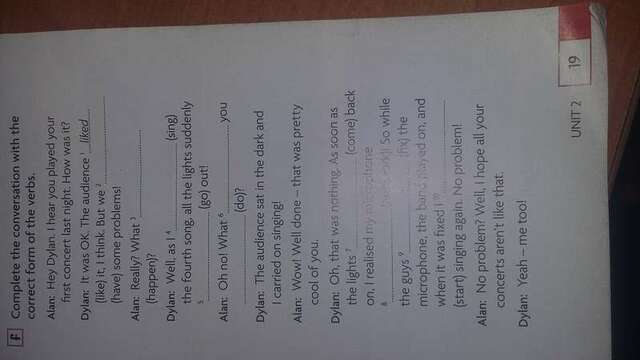 F Complete the conversation with the
correct form of the verbs.
Alan: Hey Dylan. I hear you played your
first concert last night. How was it?
Dylan: It was OK. The audience 1 liked
(like) it, I think. But we 2
(have) some problems!
Alan: Really? What 3
(happen)?
Dylan: Well, as I 4 (sing)
the fourth song, all the lights suddenly
5 (go) out!
Alan: Oh no! What 6 you
(do)?
Dylan: The audience sat in the dark and
I carried on singing!
Alan: Wow! Well done – that was pretty
cool of you.
Dylan: Oh, that was nothing. As soon as
the lights 7 (come) back
on, I realised my microphone
8 (not work)! So while
the guys 9 (fix) the
microphone, the band played on, and
when it was fixed I 10
(start) singing again. No problem!
Alan: No problem? Well, I hope all your
concerts aren't like that.
Dylan: Yeah – me too!
UNIT 2 19